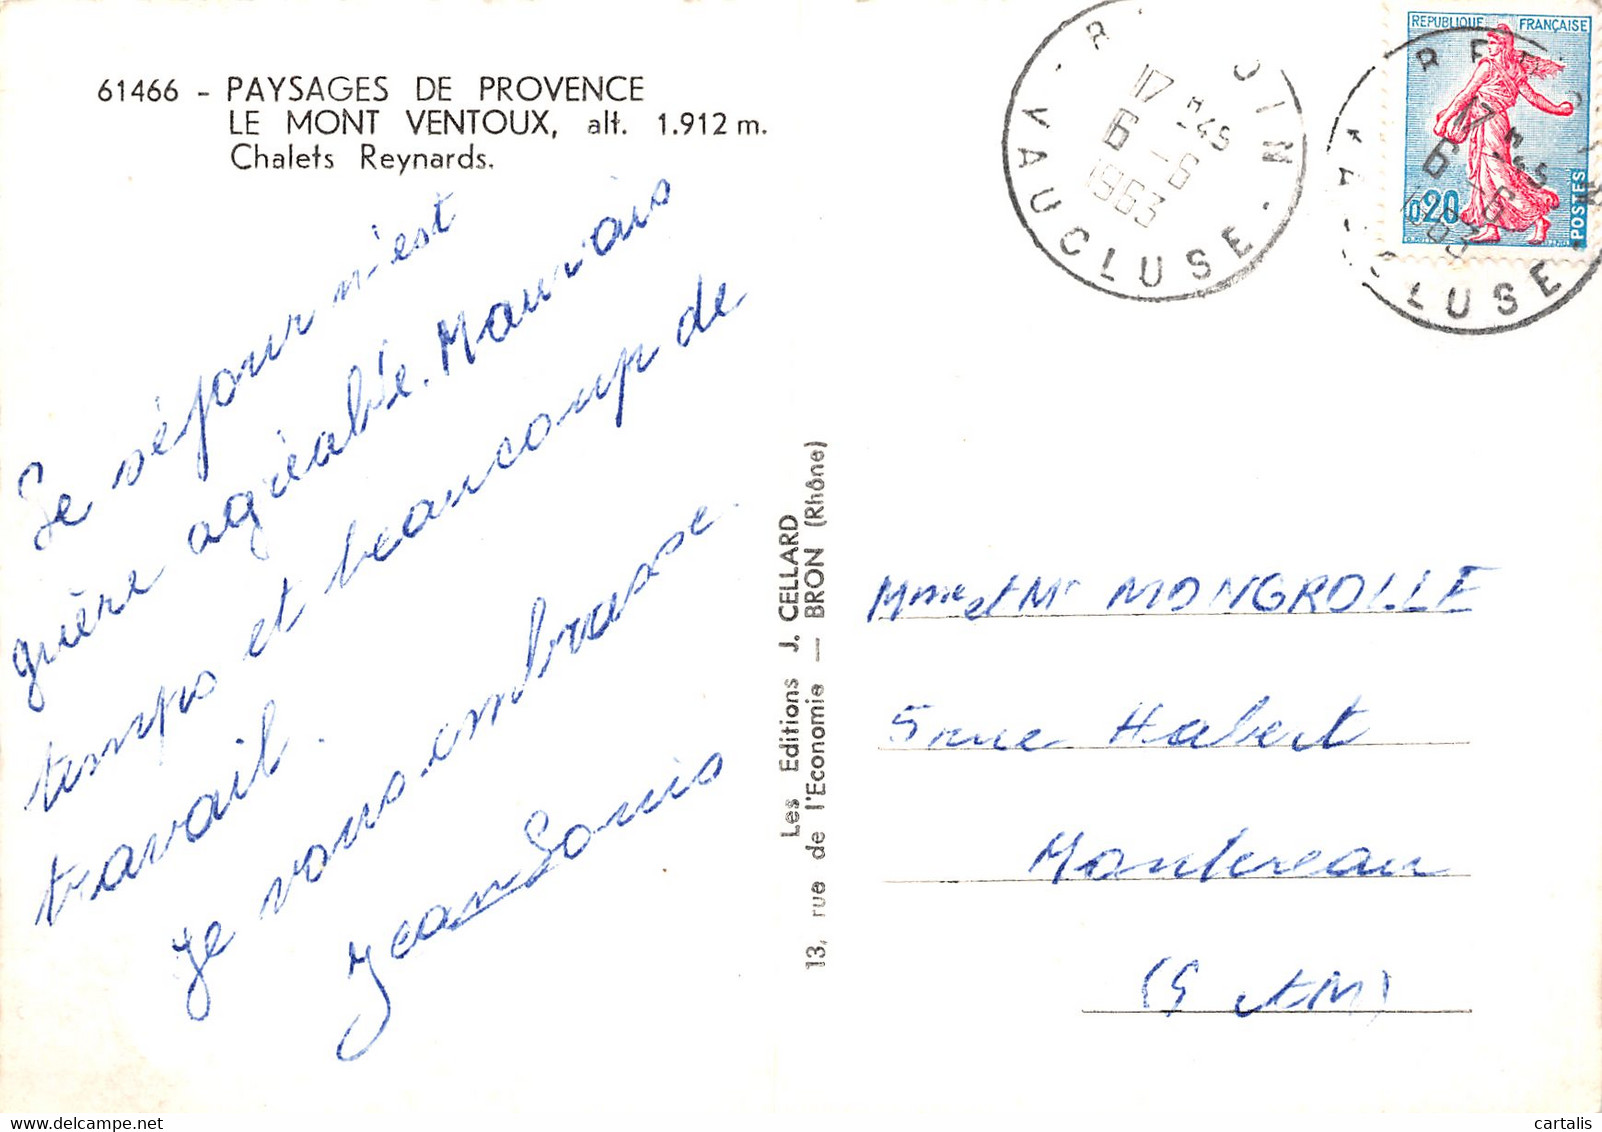 61466 - PAYSAGES DE PROVENCE
LE MONT VENTOUX, alt. 1.912 m.
Chalets Reynards.
Le séjour n'est
guère agréable. Mauvais
temps et beaucoup de
travail.
Je vous embrasse.
Jean Louis
Les Editions J. CELLARD
13, rue de l'Economie — BRON (Rhône)
17 H 45
6 - 6
1963
VAUCLUSE
REPUBLIQUE FRANÇAISE
0,20
POSTES
17 H 45
6 - 6
1963
Mme et Mr MONGROLLE
5 rue Habert
Montereau
(S et M)
delcampe.net
cartalis